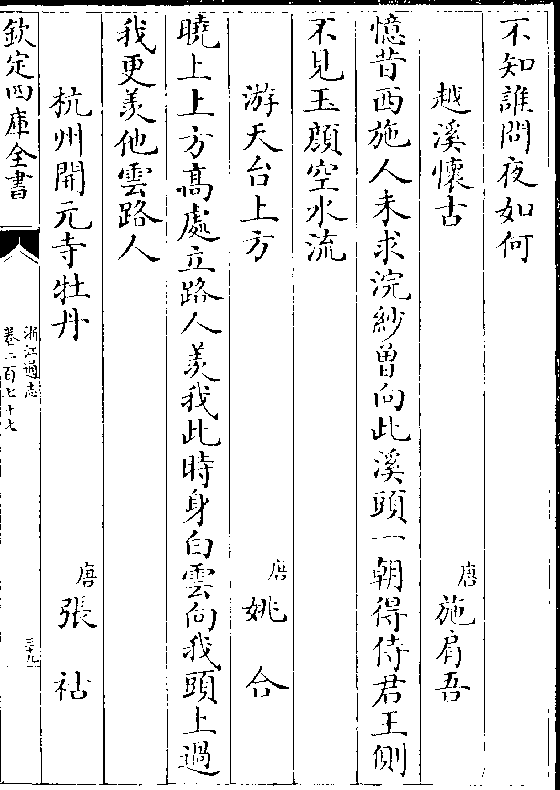 不知誰問夜如何
越溪懷古
唐
施肩吾
憶昔西施人未求浣紗曽向此溪頭一朝得侍君王側
不見玉顔空水流
游天台上方
唐
姚合
曉上上方髙處立路人羡我此時身白雲向我頭上過
我更羡他雲路人
杭州開元寺牡丹
唐
張祜
欽定四庫全書
浙江通志
卷二百七十七
三十九